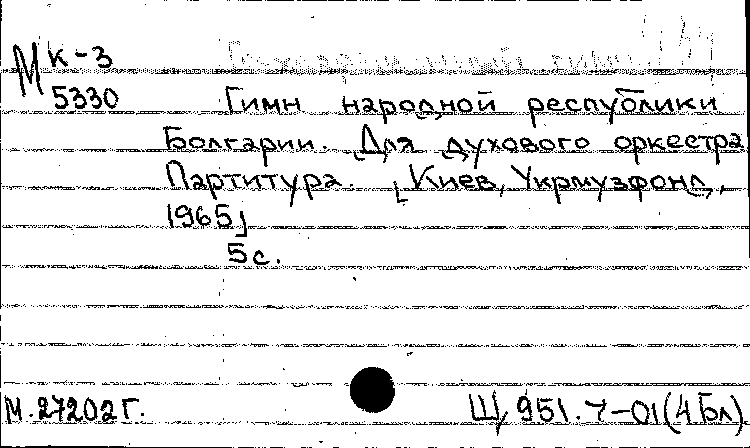 МК-3
5330
Гимн народной республики
Болгарии. Для духового оркестра
Партитура. [Киев, Укрмузфонд,
1965]
5 с.
М. 27202 Г.
Щ 951.7-01(4Бл)